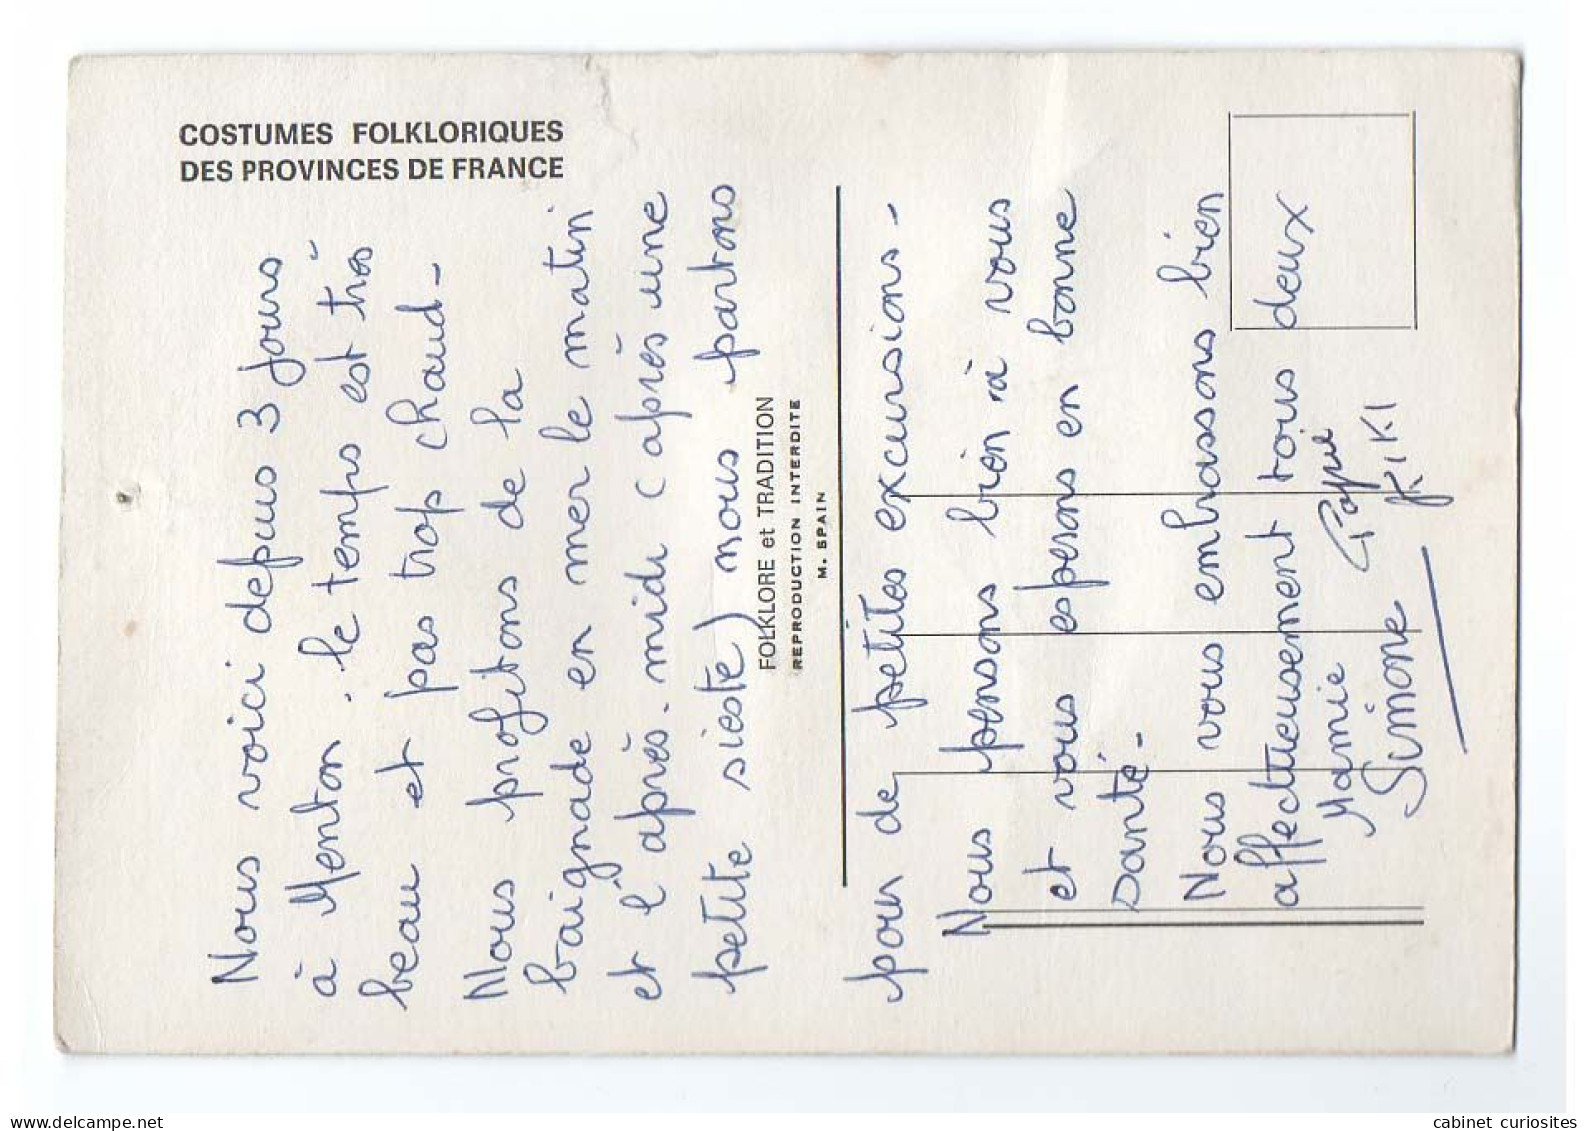 COSTUMES FOLKLORIQUES
DES PROVINCES DE FRANCE
Nous voici depuis 3 jours
à Menton. le temps est très
beau et pas trop chaud -
Nous profitons de la
baignade en mer le matin
et l'après. midi (après une
petite sieste) nous partons
FOLKLORE et TRADITION
REPRODUCTION INTERDITE
M. SPAIN
pour de petites excursions -
Nous pensons bien à vous
et vous espérons en bonne
santé -
Nous vous embrassons bien
affectueusement tous deux
Mamie Papi
Simone KIKI
delcampe.net
cabinet curiosites